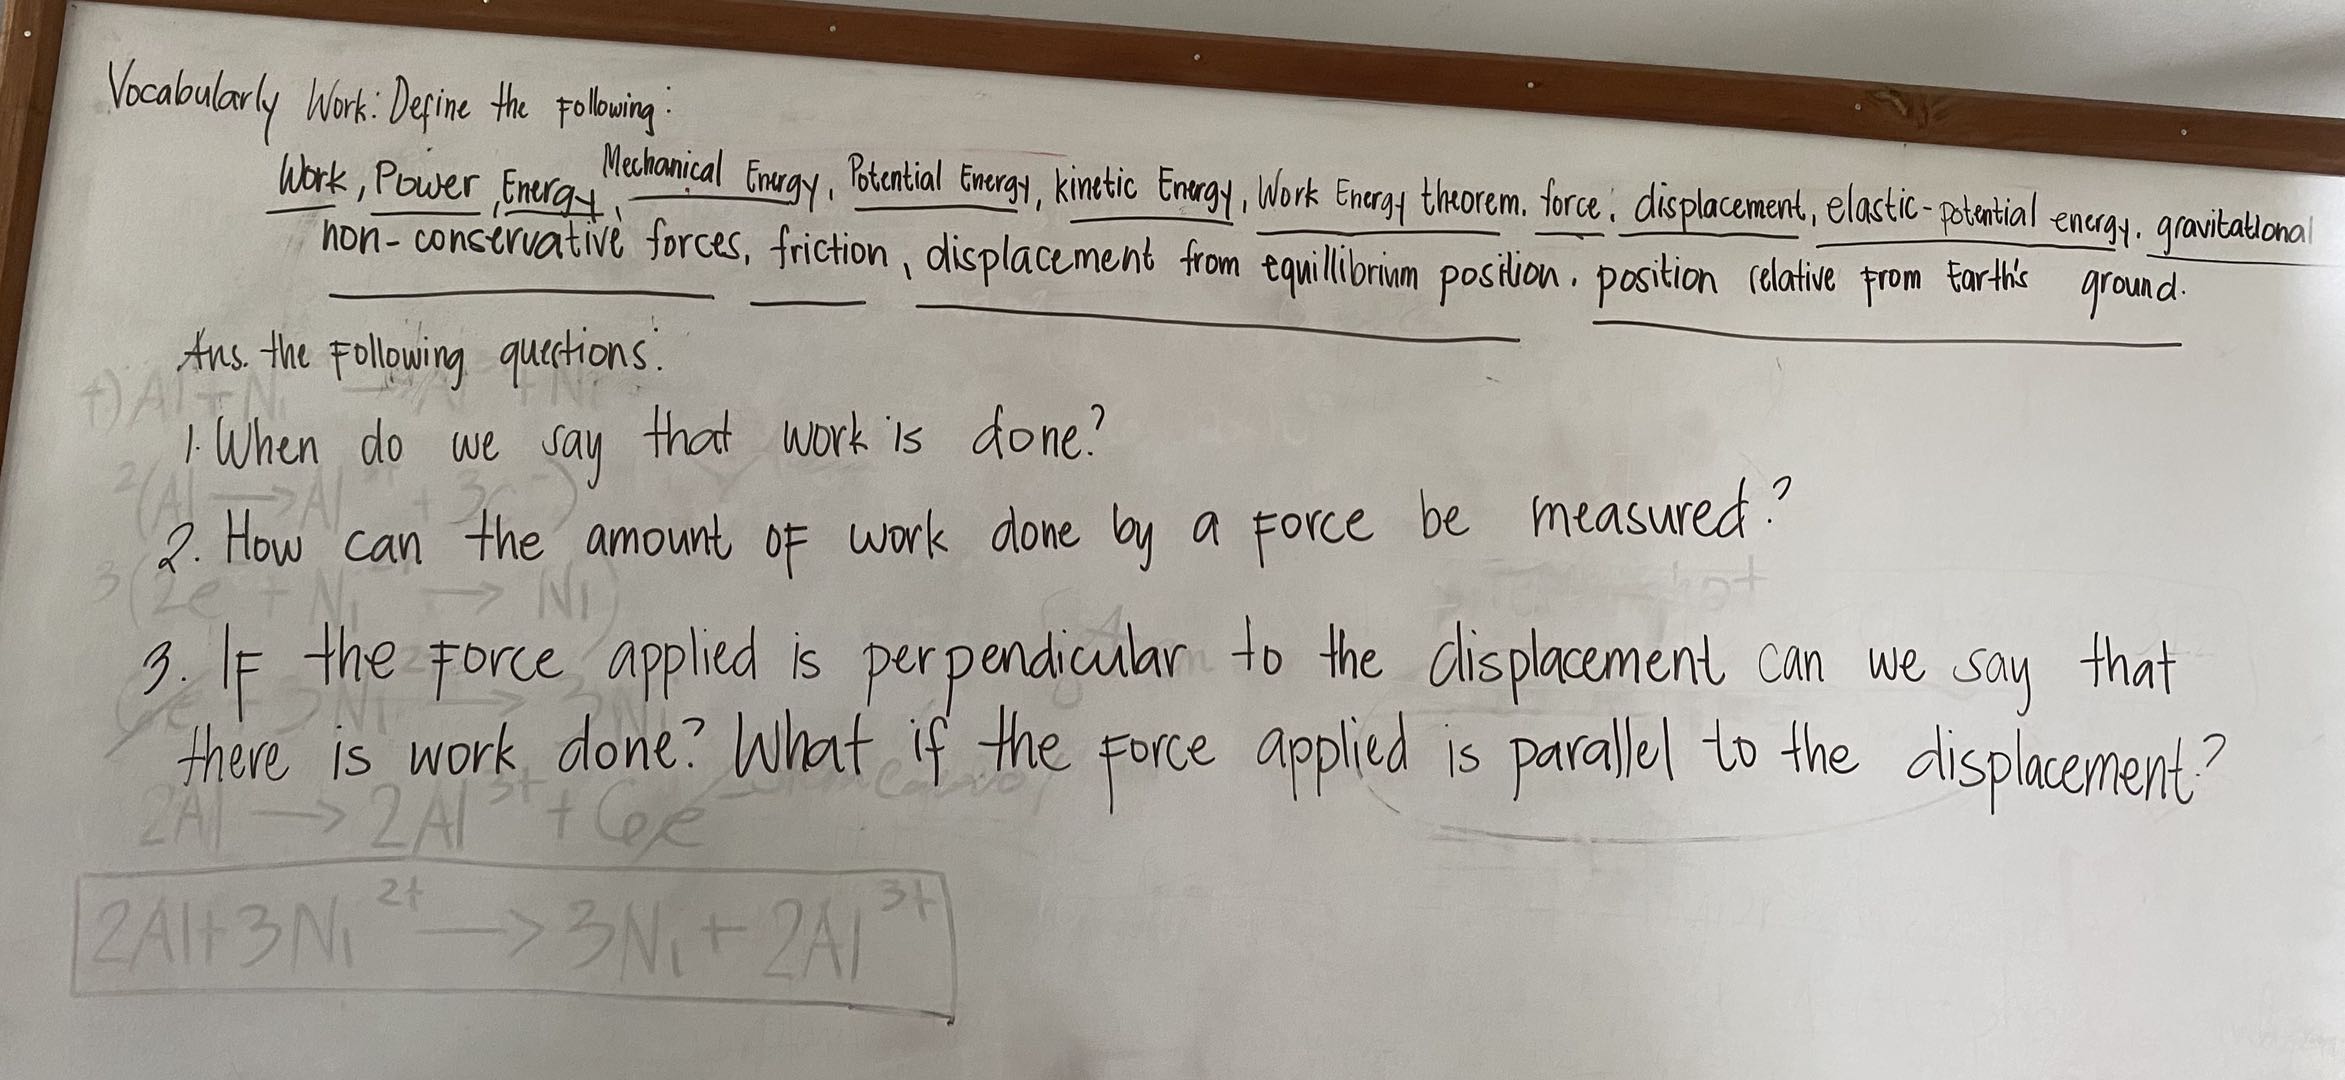 Vocabularly Work: Define the Following:
Work, Power, Energy, Mechanical Energy, Potential Energy, kinetic Energy, Work Energy theorem. force, displacement, elastic-potential energy, gravitational
non-conservative forces, friction, displacement from equillibrium position, position relative from Earth's ground.
Ans. the Following questions:
1. When do we say that work is done?
2. How can the amount of work done by a Force be measured?
3. If the Force applied is perpendicular to the displacement can we say that
there is work done? What if the Force applied is parallel to the displacement?
2(Al → Al + 3e-)
3(2e + Ni → Ni)
2Al → 2Al 3+ + 6e
2Al + 3Ni 2+ → 3Ni + 2Al 3+